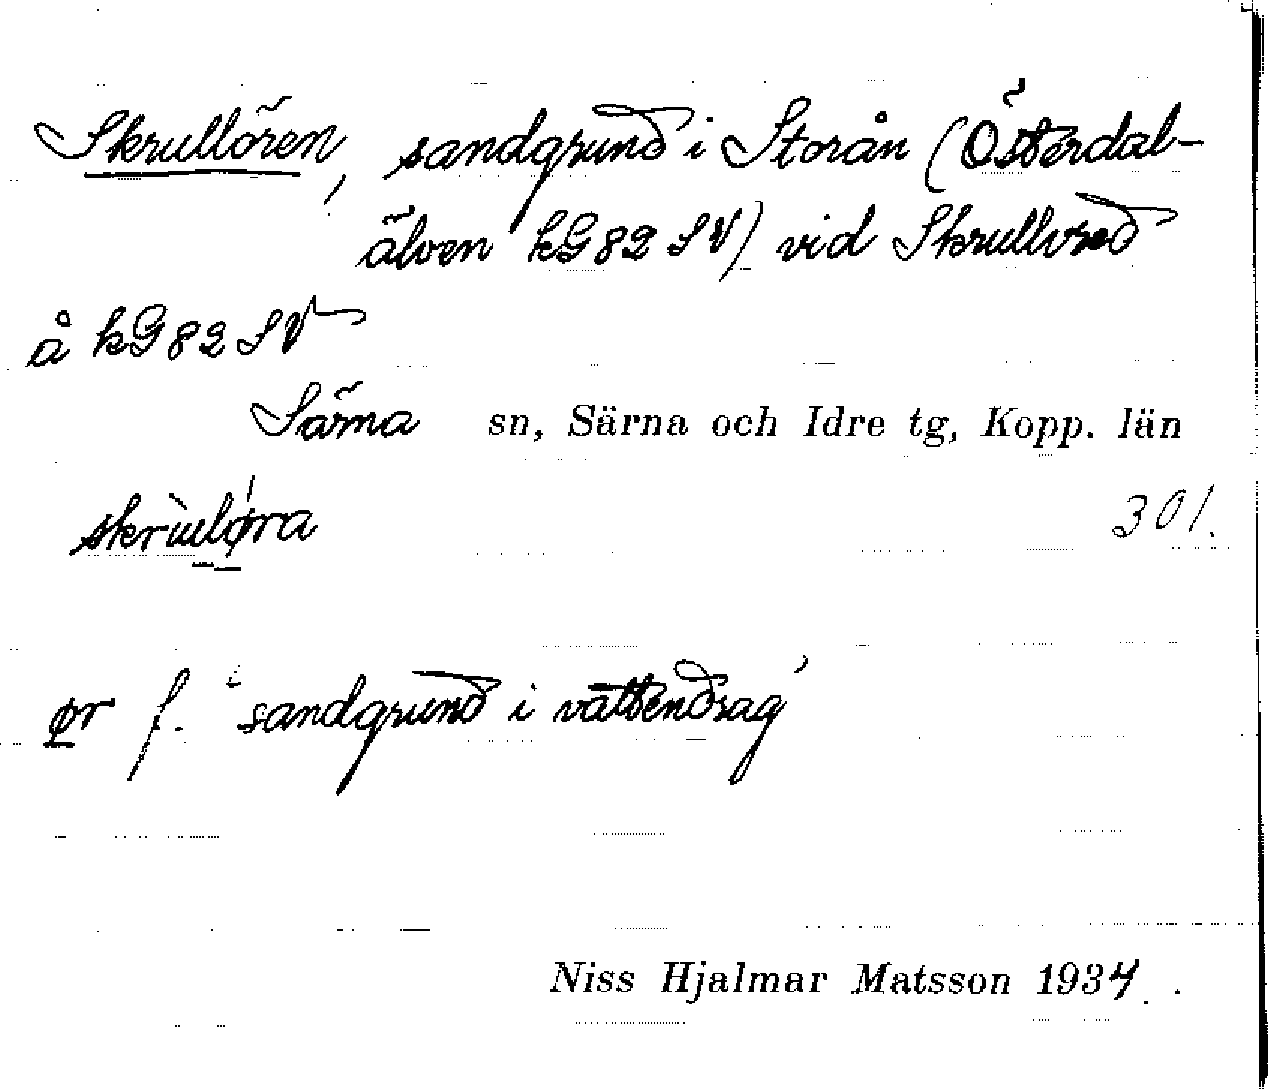 Skrullören, sandgrund i Storån (Österdal-
älven kG82 SV) vid Skrullvred
å kG82 SV
Särna sn, Särna och Idre tg, Kopp. län
301.
ør f. ‘sandgrund i vattendrag’
Niss Hjalmar Matsson 1934.